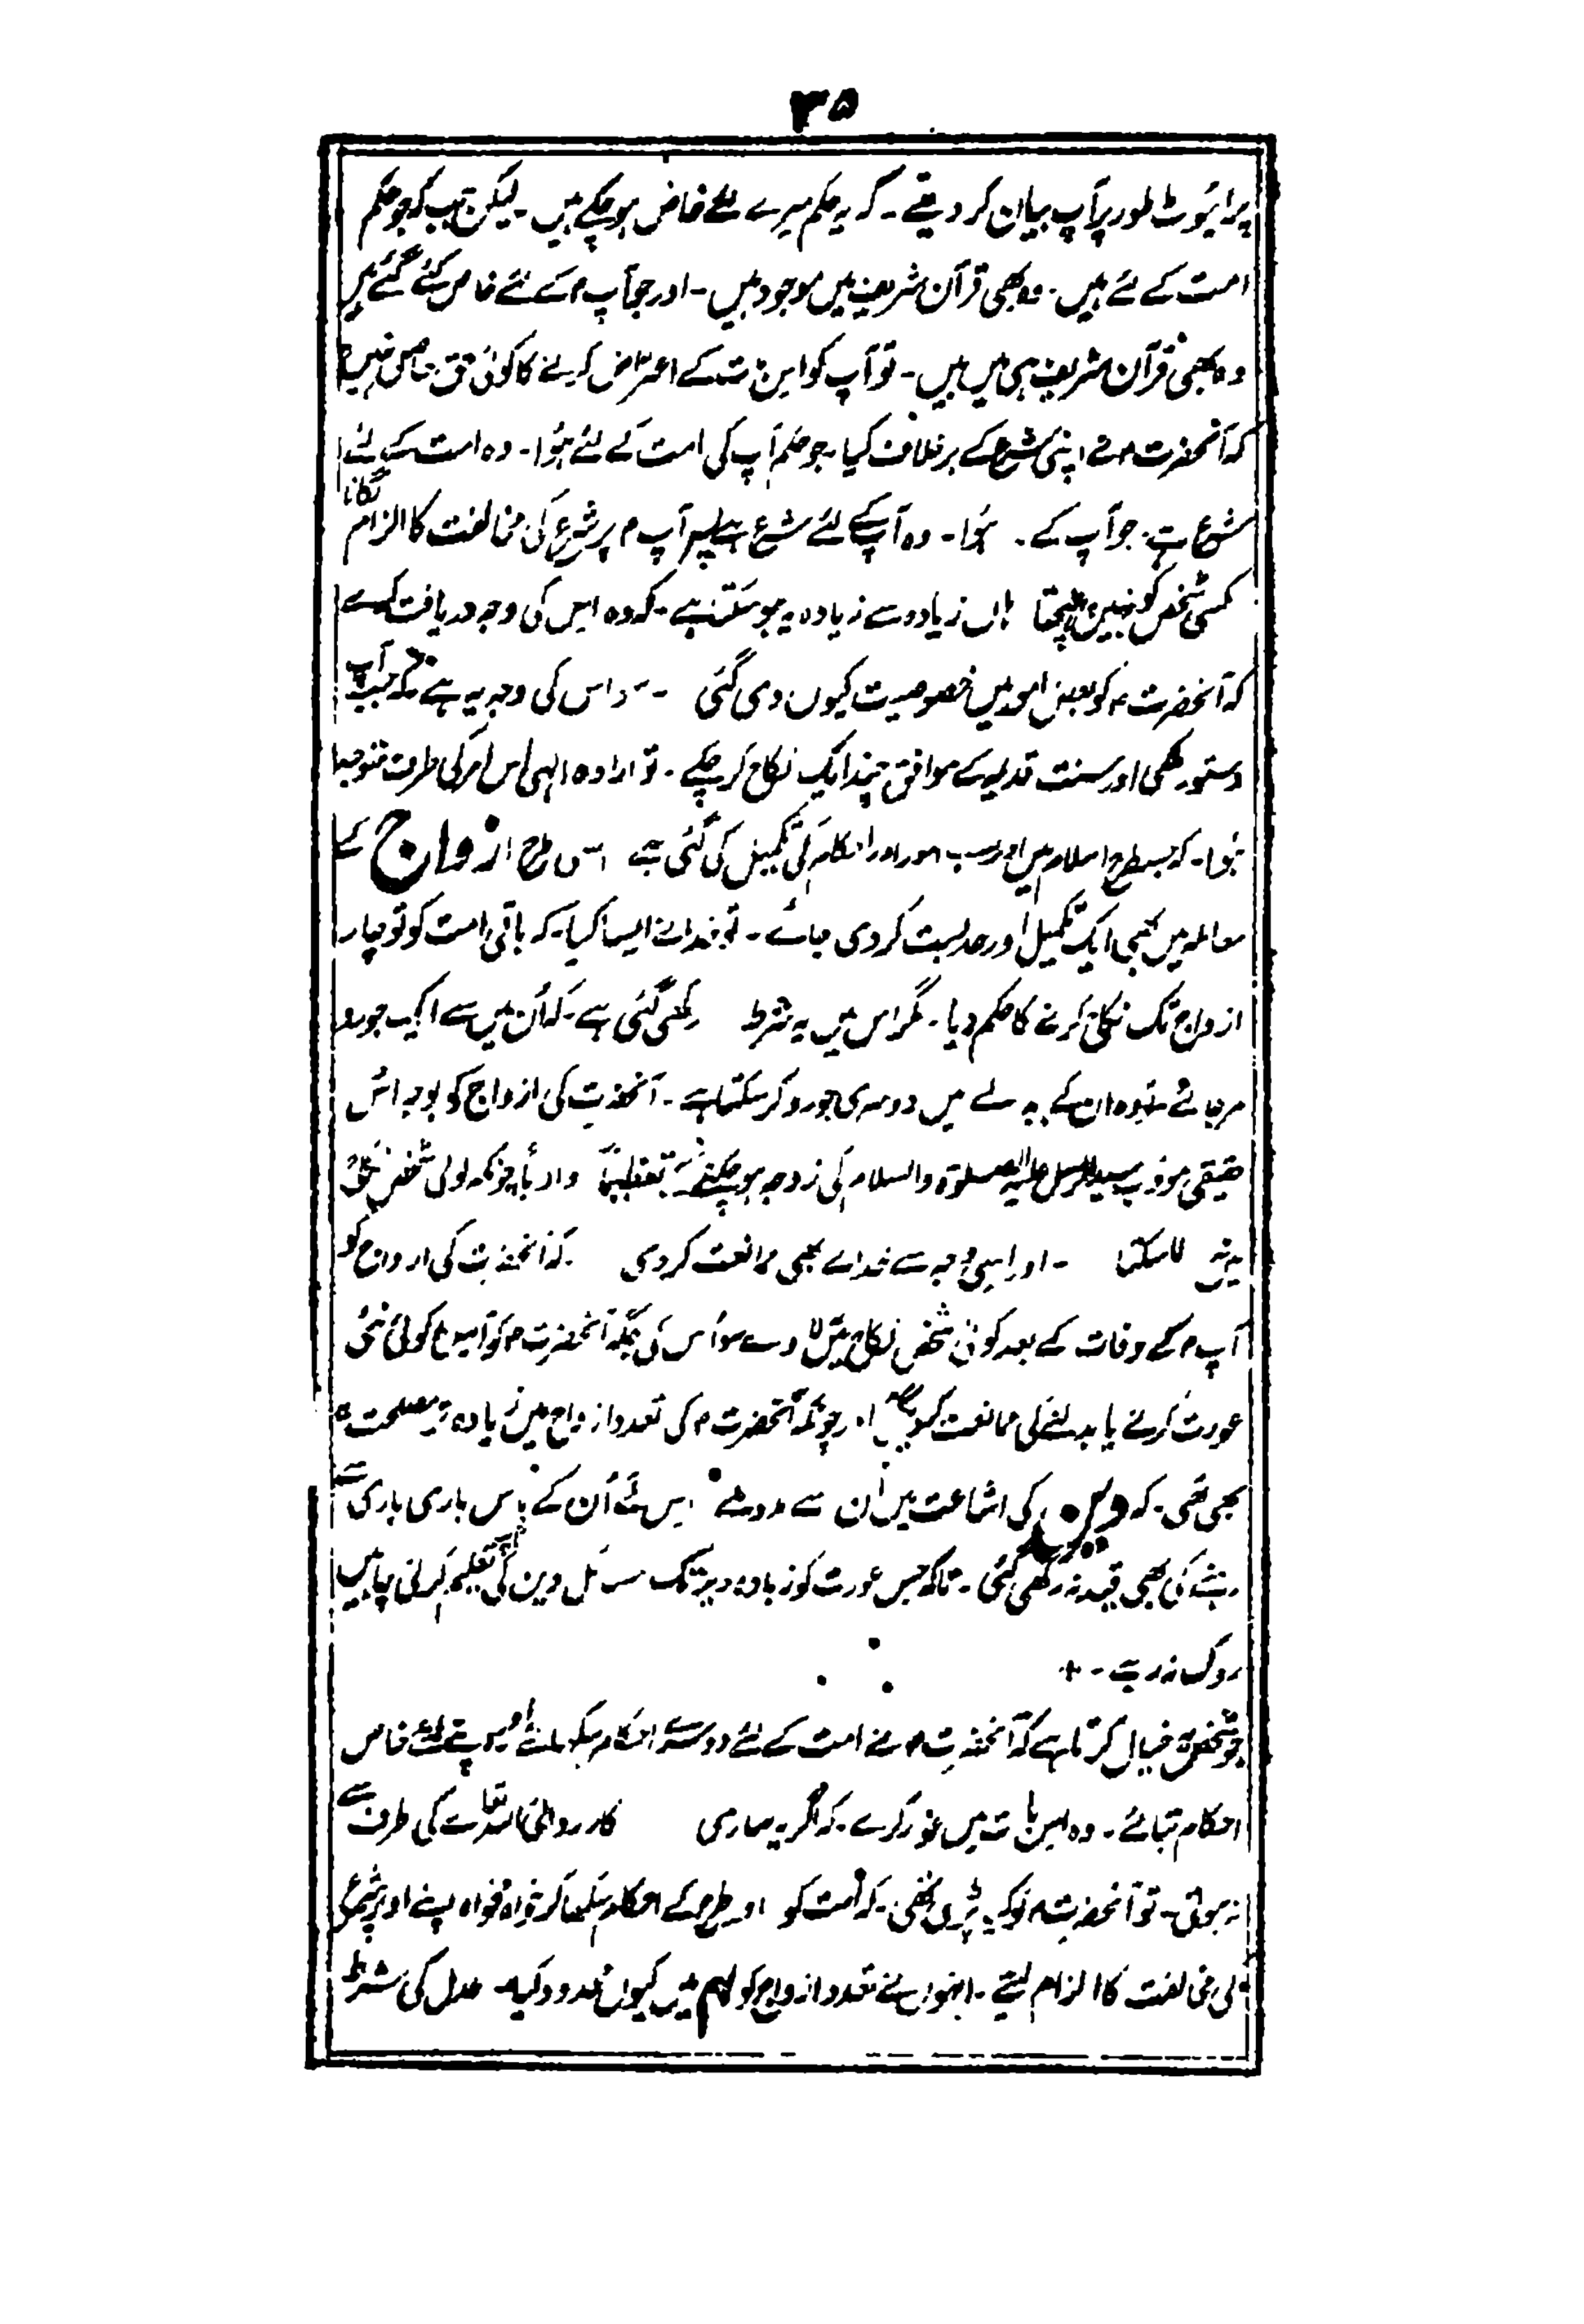 ۳۵
پرائیوٹ طور پر آپ بیان کر دیتے ۔ کہ یہ حکم میرے لئے خاص ہو چکے ہیں ۔ لیکن جب کہ جو حکم
امت کے لئے ہیں ۔ وہ بھی قرآن شریف میں موجود ہیں ۔ اور جو آپ م کے لئے خاص کئے گئے ہیں
وہ بھی قرآن شریف ہی میں ہیں ۔ تو آپ کو اس بات کے اعتراض کرنے کا کوئی حق حاصل نہیں
کہ آنحضرت م نے اپنی شرع کے برخلاف کیا ۔ جو حکم آپ کی امت کے لئے ہؤا ۔ وہ امت کے لئے
شرع ہے ۔ جو آپ کے ۔ ہؤا ۔ وہ آپ کے لئے شرع ہے پس آپ م پر شرع کی مخالفت کا الزام لگانا
کسی شخص کو نہیں پہنچتا ہاں زیادہ سے زیادہ یہ ہو سکتا ہے ۔ کہ وہ اس کی وجہ دریافت کرے
کہ آنحضرت م کو بعض امور میں خصوصیت کیوں دی گئی ۔ اس کی وجہ یہ ہے کہ جب آپ
دستور ملکی اور سنت قدیمہ کے موافق چند ایک نکاح کر چکے ۔ تو ارادہ الہی اس امر کی طرف متوجہ
ہوا ۔ کہ جسطرح اسلام میں اور سب امور اور احکام کی تکمیل کی گئی ہے اسی طرح ازواج کے
معاملہ میں بھی ایک تکمیل اور حد بست کر دی جائے ۔ تو خدا نے ایسا کیا ۔ کہ باقی امت کو تو چار
ازواج تک نکاح کرنے کا حکم دیا ۔ مگر اس میں یہ شرط رکھی گئی ہے ۔ کہ اُن میں سے ایک جورو
مر جائے تو وہ ان کے بدلے میں دوسری جورو کر سکتا ہے ۔ آنحضرت کی ازواج کو بوجہ اس
حقیقی سید الرسل علیہ الصلوۃ والسلام کی زوجہ ہو چکنے کے تعظیماً و ادباً چونکہ کوئی شخص نکاح
میں نہیں لا سکتا ۔ اور اسی وجہ سے خدا نے بھی ممانعت کر دی ۔ کہ آنحضرت کی ازواج کو
آپ م کے وفات کے بعد کوئی شخص نکاح میں لا وے سو اُس کی جگہ آنحضرت م کو آیندہ کوئی نئی
عورت کرنے یا بدلنے کی ممانعت اور چونکہ آنحضرت م کی تعدد ازواج میں زیادہ تر مصلحت یہ
بھی تھی ۔ کہ دین کی اشاعت میں اُن سے مدد ملے اس لئے اُن کے پاس باری باری سے
رہنے کی بھی قید نہ رکھی گئی ۔ تا کہ جس عورت کو زیادہ دیر تک مسائل دین کی تعلیم کرنی چاہیں
روک نہ رہے ۔ +
جو شخص یہ خیال کرتا ہے کہ آنحضرت م نے امت کے لئے دوسرے احکام سکھلائے اور اپنے لئے خاص
احکام بتائے ۔ وہ اس بات میں غور کرے ۔ کہ اگر یہ ساری کارروائی اللہ تعالے کی طرف سے
نہ ہوتی ۔ تو آنحضرت م کو کیا پڑی تھی ۔ کہ اُمت کو اور طرح کے احکام سکھا کر خواہ مخواہ اپنے اوپر شرع
کی مخالفت کا الزام لیتے ۔ انہوں نے تعدد ازواج کو ۴ میں کیوں محدود کیا ۔ عدل کی شرط